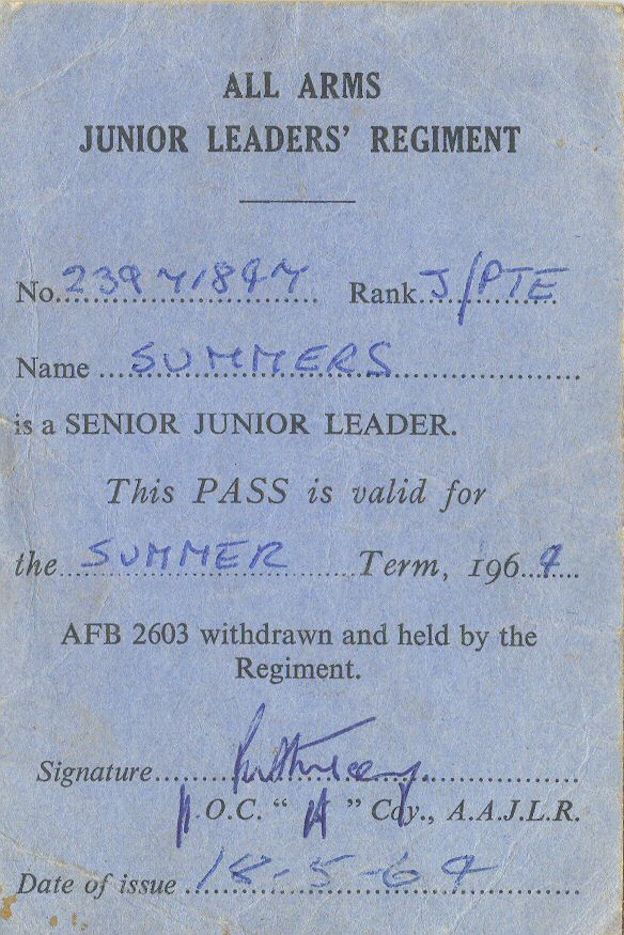 ALL ARMS
JUNIOR LEADERS' REGIMENT
No. 23971847 Rank J/PTE
Name SUMMERS
is a SENIOR JUNIOR LEADER.
This PASS is valid for
the SUMMER Term, 1964
AFB 2603 withdrawn and held by the
Regiment.
Signature
O.C. "A" Coy., A.A.J.L.R.
Date of issue 18-5-64